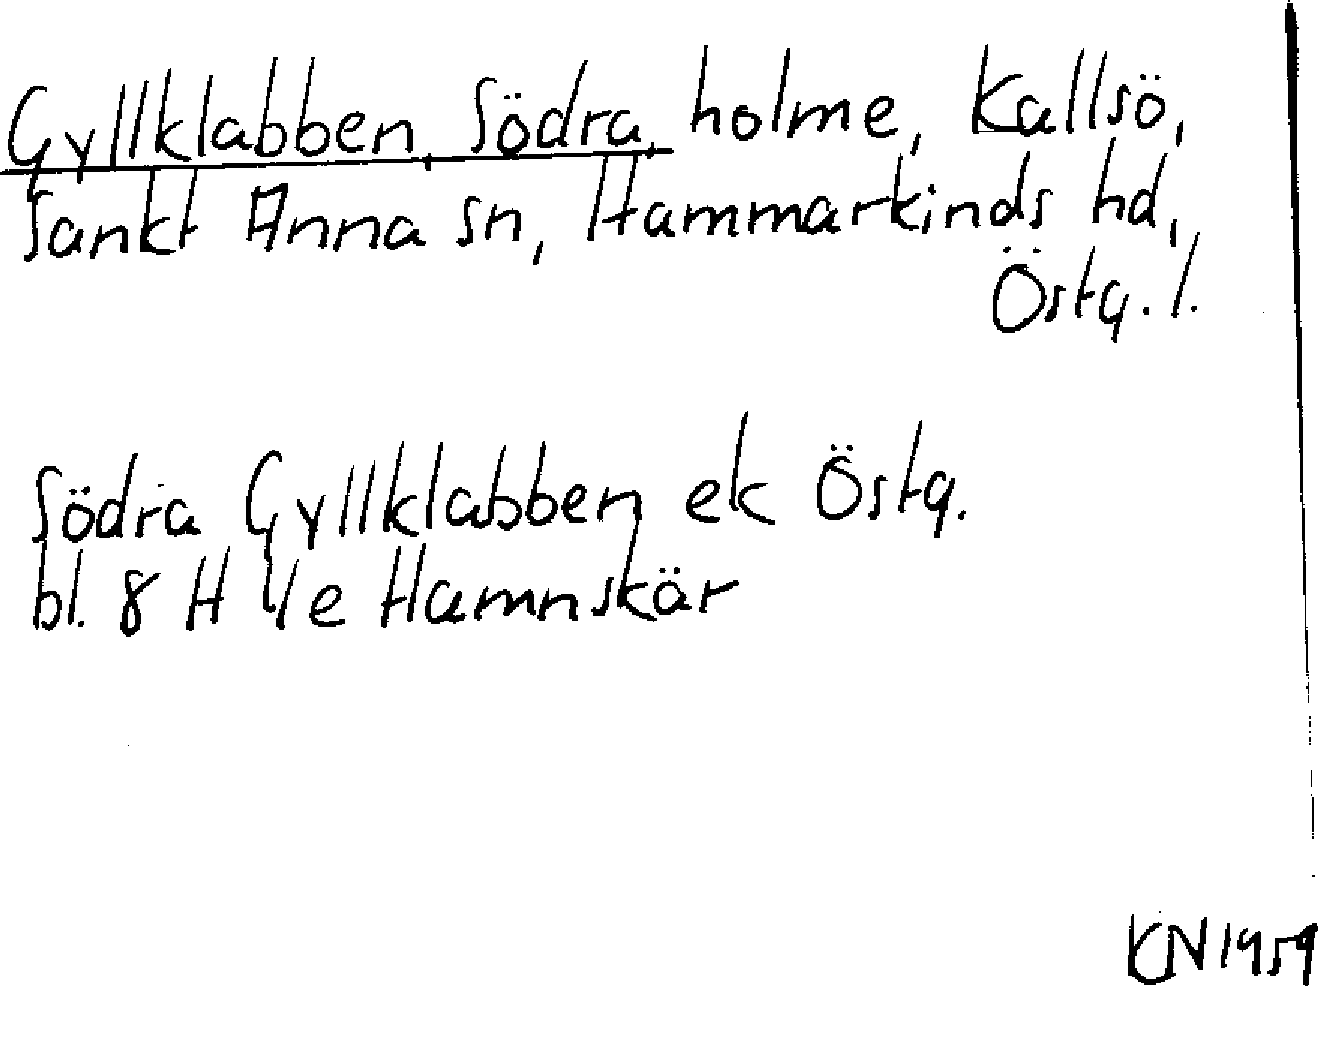 Gyllklabben, Södra, holme, Kallsö,
Sankt Anna sn, Hammarkinds hd,
Östg. l.
Södra Gyllklabben ek Östg.
bl. 8 H 4/e Hamnskär
KN 1959